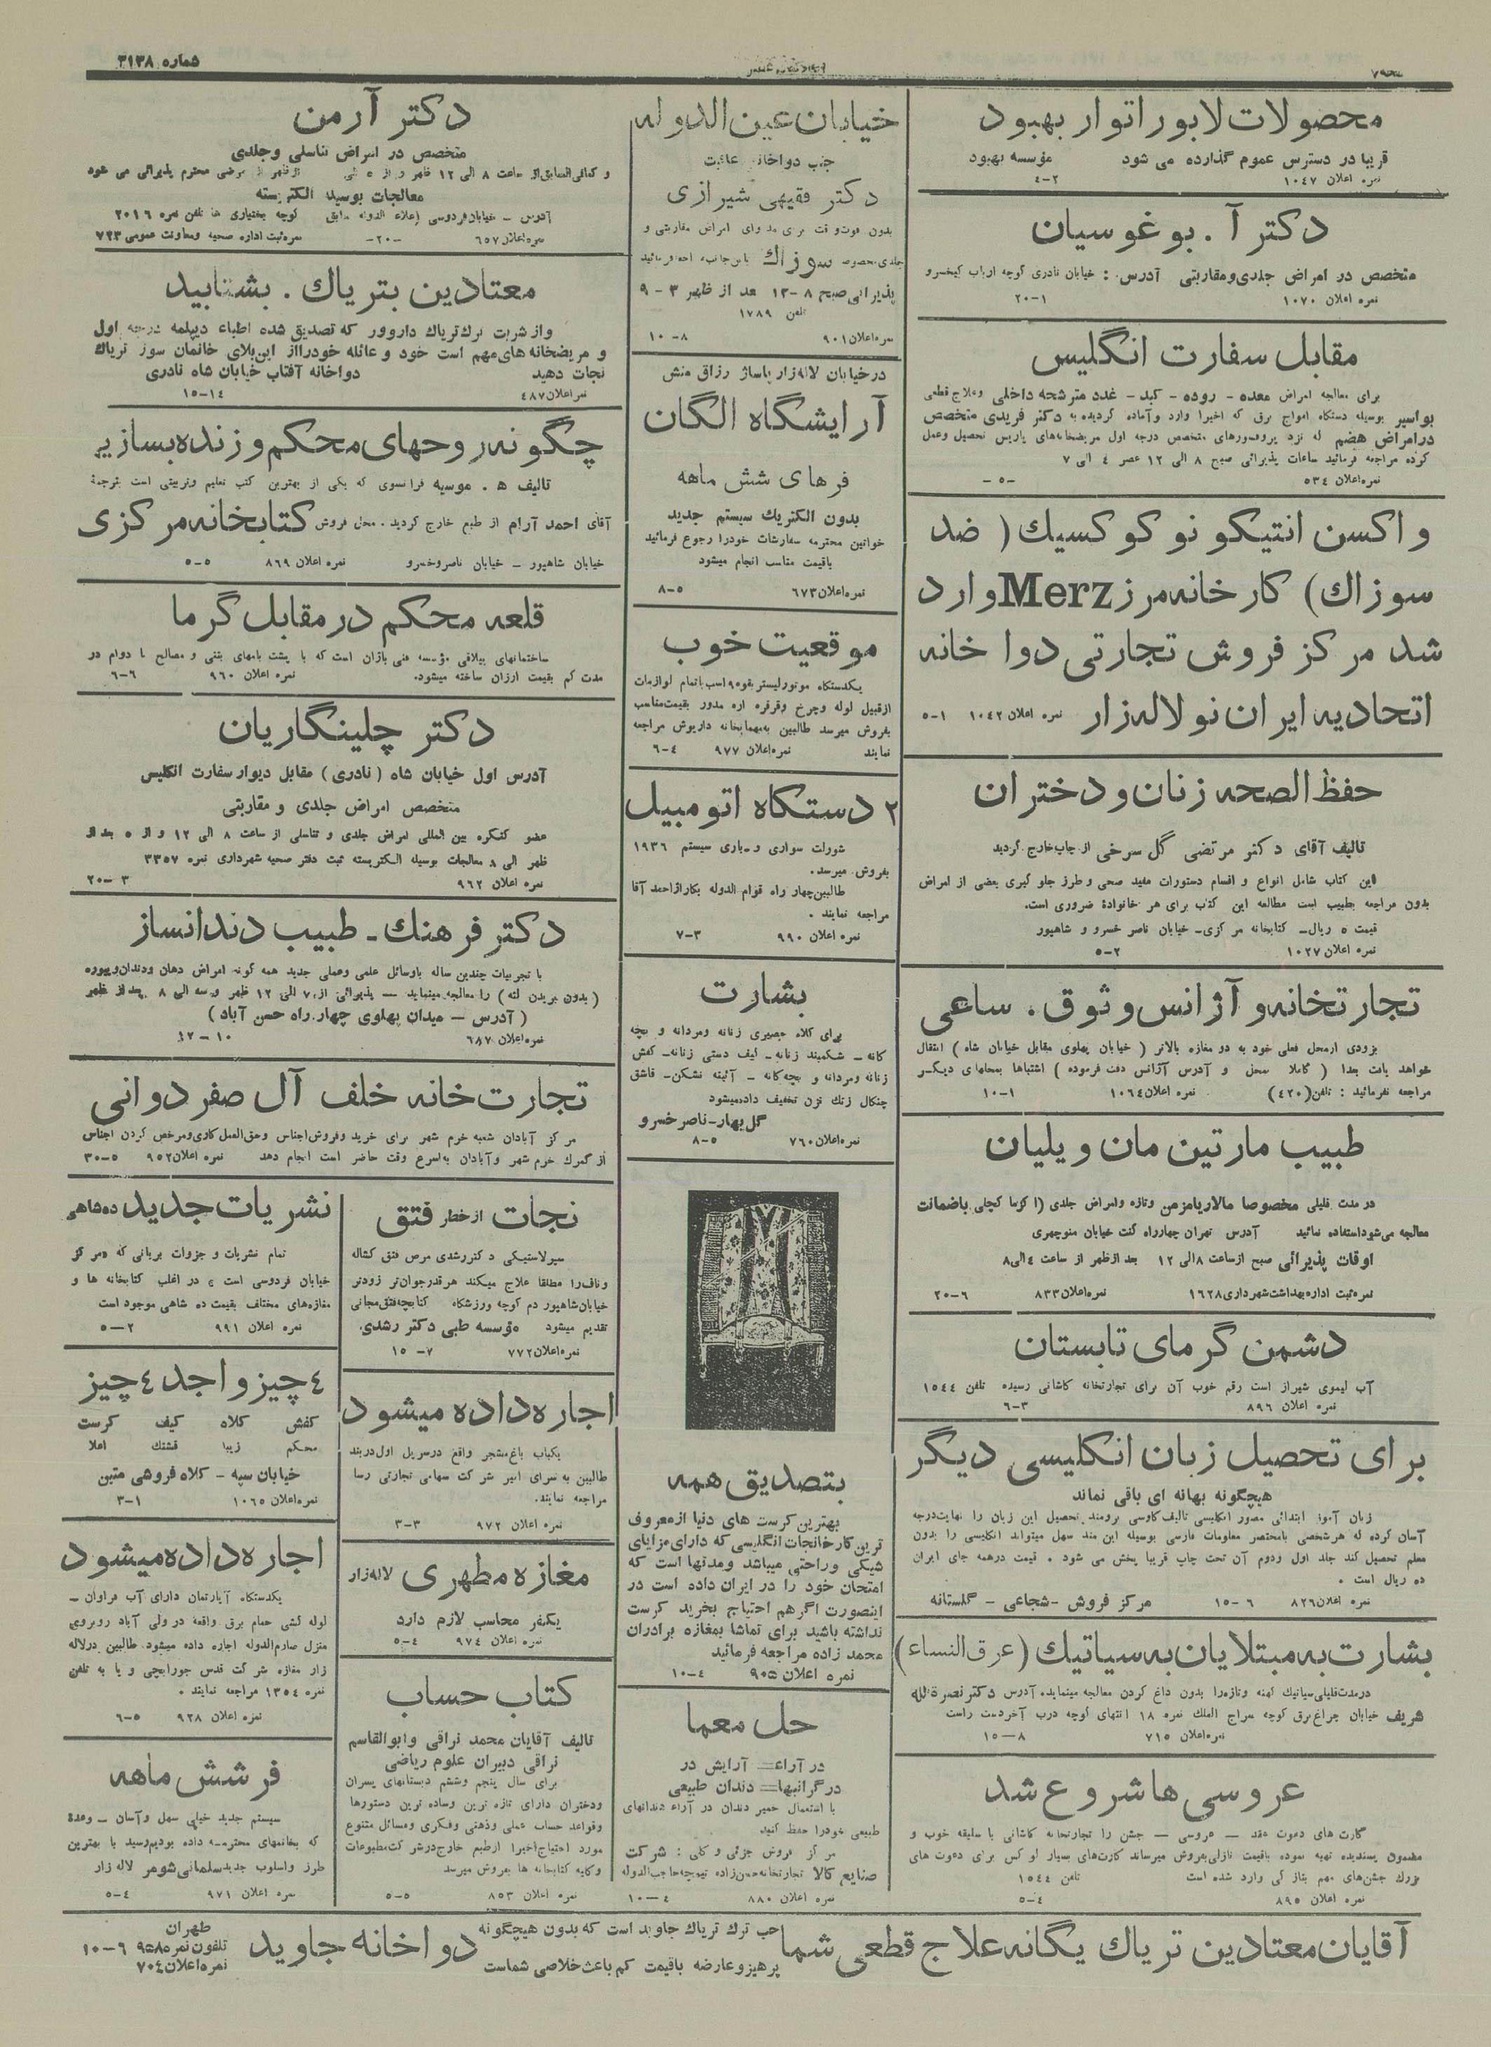 شماره ۳۱۳۸
محصولات لابوراتوار بهبود
قریبا در دسترس عموم گذارده می شود مؤسسه بهبود
نمره اعلان ۱۰۴۷ ۴-۲
دکتر آ . بوغوسیان
متخصص در امراض جلدی و مقاربتی آدرس : خیابان نادری کوچه ارباب کیخسرو
نمره اعلان ۱۰۷۰ ۲۰-۱
مقابل سفارت انگلیس
برای معالجه امراض معده - روده - کبد - غدد مترشحه داخلی وعلاج قطعی
بواسیر بوسیله دستگاه امواج برق که اخیرا وارد وآماده گردیده به دکتر فریدی متخصص
درامراض هضم که نزد پروفسورهای متخصص درجه اول مریضخانه‌های پاریس تحصیل وعمل
کرده مراجعه فرمائید ساعات پذیرائی صبح ۸ الی ۱۲ عصر ٤ الی ۷
نمره اعلان ٥۳٤ -٥-
واکسن انتیگونو کوکسیك ( ضد
سوزاك) کارخانه مرز Merz وارد
شد مرکز فروش تجارتی دوا خانه
اتحادیه ایران نو لاله‌زار نمره اعلان ۱۰٤۲ ۱-٥
حفظ الصحه زنان و دختران
تالیف آقای دکتر مرتضی گل سرخی از چاپ خارج گردید
این کتاب شامل انواع و اقسام دستورات مفید صحی و طرز جلو گیری بعضی از امراض
بدون مراجعه بطبیب است مطالعه این کتاب برای هر خانوادهٔ ضروری است.
قیمت ٥ ریال- کتابخانه مرکزی- خیابان ناصر خسرو و شاهپور
نمره اعلان ۱۰۲۷ ۲-٥
تجارتخانه و آژانس وثوق . ساعی
بزودی ازمحل فعلی خود به دو مغازه بالاتر ( خیابان پهلوی مقابل خیابان شاه ) انتقال
خواهد یافت بعدا ( کاملا محل و آدرس آژانس دقت فرموده ) اشتباها بمحلهای دیگر
مراجعه نفرمائید : تلفن (٤۲۰) نمره اعلان ۱۰٦٤ ۱-۱۰
طبیب مارتین مان ویلیان
در مدت قلیلی مخصوصا مالاریا مزمن وتازه وامراض جلدی (اکزما کچلی) باضمانت
معالجه می‌شود استفاده نمائید آدرس تهران چهارراه کنت خیابان منوچهری
اوقات پذیرائی صبح از ساعت ۸ الی ۱۲ بعد از ظهر از ساعت ٤ الی ۸
نمره ثبت اداره بهداشت شهرداری ۱٦۲۸ نمره اعلان ۸۳۳ ٦-۲۰
دشمن گرمای تابستان
آب لیموی شیراز است رقم خوب آن برای تجارتخانه کاشانی رسیده تلفن ۱٥٤٤
نمره اعلان ۸۹٦ ۳-٦
برای تحصیل زبان انگلیسی دیگر
هیچگونه بهانه ای باقی نماند
زبان آموز ابتدائی مصور انگلیسی تالیف کاوسی برومند تحصیل این زبان را نهایت‌درجه
آسان کرده که هر شخصی بامختصر معلومات فارسی بوسیله این متد سهل میتواند انگلیسی را بدون
معلم تحصیل کند جلد اول ودوم آن تحت چاپ قریبا پخش می شود . قیمت درهمه جای ایران
ده ریال است .
نمره اعلان ۸۲٦ ٦-۱٥ مرکز فروش - شجاعی - گلستانه
بشارت به مبتلایان به سیاتیك (عرق النساء)
درمدت قلیلی سیاتیك کهنه وتازه را بدون داغ کردن معالجه مینماید. آدرس دکتر نصرت‌الله
شریف خیابان چراغ برق کوچه سراج الملك نمره ۱۸ انتهای کوچه درب آخر دست راست
نمره اعلان ۷۱٥ ۸-۱٥
عروسی ها شروع شد
کارت های دعوت عقد - عروسی - جشن را تجارتخانه کاشانی با سلیقه خوب و
مضمون پسندیده تهیه نموده باقیمت نازلی بفروش میرساند کارت‌های بسیار لوکس برای دعوت های
بزرك جشن‌های مهم وارد شده است تلفن ۱٥٤٤
نمره اعلان ۸۹٥ ٤-٥
خیابان عین الدوله
جنب دواخانه
دکتر فقیهی شیرازی
بدون فوت وقت برای مداوای امراض مقاربتی و
جلدی مخصوصا سوزاك باین جانب مراجعه فرمائید
پذیرائی صبح ۸-۱۲ بعد از ظهر ۳-۹
تلفن ۱۷۸۹
نمره اعلان ۹۰۱ ۸-۱۰
در خیابان لاله‌زار پاساژ رزاق منش
آرایشگاه الگان
فرهای شش ماهه
بدون الکتریك سیستم جدید
خوانین محترمه سفارشات خودرا رجوع فرمائید
باقیمت مناسب انجام میشود
نمره اعلان ٦۷۳ ٥-۸
موقعیت خوب
یکدستگاه موتور لیستر بقوه ۹ اسب باتمام لوازمات
ازقبیل لوله وچرخ وقرقره اره مدور بقیمت مناسب
بفروش میرسد طالبین به‌مهمانخانه داریوش مراجعه
نمایند نمره اعلان ۹۷۷ ٤-٦
۲ دستگاه اتومبیل
شورلت سواری و باری سیستم ۱۹۳٦
بفروش میرسد.
طالبین چهار راه قوام الدوله بکاراژ احمد آقا
مراجعه نمایند .
نمره اعلان ۹۹۰ ۳-۷
بشارت
برای کلاه حصیری زنانه ومردانه و بچه
گانه - شکمبند زنانه - کیف دستی زنانه - کفش
زنانه ومردانه و بچه‌گانه - آئینه نشکن - قاشق
چنگال زنك نزن تخفیف داده‌میشود
گل بهار - ناصر خسرو
نمره اعلان ۷٦۰ ٥-۸
بتصدیق همه
بهترین کرست های دنیا از معروف
ترین کارخانجات انگلیسی که دارای مزایای
شیکی و راحتی میباشد و مدتها است که
امتحان خود را در ایران داده است در
اینصورت اگر هم احتیاج بخرید کرست
نداشته باشید برای تماشا بمغازه برادران
محمد زاده مراجعه فرمائید
نمره اعلان ۹۰٥ ٤-۱۰
حل معما
در آراء = آرایش در
در گرانبها = دندان طبیعی
با استعمال خمیر دندان در آراء دندانهای
طبیعی خودرا حفظ کنید
مرکز فروش جزئی و کلی : شرکت
صنایع کالا تجارتخانه حسن‌زاده تیمچه حاجب‌الدوله
نمره اعلان ۸۸۰ ٤-۱۰
دکتر آرمن
متخصص در امراض تناسلی وجلدی
و کمافی‌السابق از ساعت ۸ الی ۱۲ ظهر و از ٥ الی از مرضی محترم پذیرائی می شود
معالجات بوسیله الکتریسته
آدرس - خیابان فردوسی (علاء الدوله سابق کوچه بختیاری ها تلفن نمره ۲۰۱٦
نمره اعلان ٦٥۷ -۲۰- نمره ثبت اداره صحیه ومعاونت عمومی ۷۲۳
معتادین بتریاك . بشتابید
واز شربت ترك تریاك داروور که تصدیق شده اطباء دیپلمه درجه اول
و مریضخانه های مهم است خود و عائله خودرا از این بلای خانمان سوز تریاك
نجات دهید دواخانه آفتاب خیابان شاه نادری
نمره اعلان ٤۸۷ ۱٤-۱٥
چگونه روحهای محکم و زنده بسازیم
تالیف ه . موسیه فرانسوی که یکی از بهترین کتب تعلیم وتربیتی است بترجمهٔ
آقای احمد آرام از طبع خارج گردید . محل فروش کتابخانه مرکزی
خیابان شاهپور - خیابان ناصروخسرو نمره اعلان ۸٦۹ ٥-٥
قلعه محکم در مقابل گرما
ساختمانهای ییلاقی مؤسسه فنی بازان است که با پشت بامهای بتنی و مصالح با دوام در
مدت کم بقیمت ارزان ساخته میشود. نمره اعلان ۹٦۰ ٦-٦
دکتر چلینگاریان
آدرس اول خیابان شاه ( نادری ) مقابل دیوار سفارت انگلیس
متخصص امراض جلدی و مقاربتی
عضو کنگره بین المللی امراض جلدی و تناسلی از ساعت ۸ الی ۱۲ و از ٥ بعد از
ظهر الی ۸ معالجات بوسیله الکتریسته ثبت دفتر صحیه شهرداری نمره ۳۳٥۷
نمره اعلان ۹٦۲ ۳-۲۰
دکتر فرهنك - طبیب دندانساز
با تجربیات چندین ساله باوسائل علمی وعملی جدید همه گونه امراض دهان ودندان وپیوره
( بدون بریدن لثه ) را معالجه مینماید - پذیرائی از ۷ الی ۱۲ ظهر و سه الی ۸ بعد از ظهر
( آدرس - میدان پهلوی چهار راه حسن آباد )
نمره اعلان ٦۸۷ ۱۰-۱۲
تجارت خانه خلف آل صفر دوانی
مرکز آبادان شعبه خرم شهر برای خرید وفروش اجناس وحق‌العمل‌کاری ومرخص کردن اجناس
از گمرك خرم شهر وآبادان به‌اسرع وقت حاضر است انجام دهد نمره اعلان ۹٥۲ ٥-۳۰
نجات از خطر فتق
سیر لاستیکی دکتر رشدی مرض فتق کشاله
وناف را مطلقا علاج میکند هر قدر جوان‌تر زودتر
خیابان شاهپور دم کوچه ورزشگاه کتابچه فتق مجانی
تقدیم میشود مؤسسه طبی دکتر رشدی.
نمره اعلان ۷۷۲ ۷-۱٥
اجاره داده میشود
یکباب باغ مشجر واقع در سرپل اول دربند
طالبین به سرای امیر شرکت سهامی تجارتی رسا
مراجعه نمایند.
نمره اعلان ۹۷۲ ۳-۳
مغازه مطهری لاله‌زار
یکنفر محاسب لازم دارد
نمره اعلان ۹۷٤ ٤-٥
کتاب حساب
تالیف آقایان محمد نراقی وابوالقاسم
نراقی دبیران علوم ریاضی
برای سال پنجم وششم دبستانهای پسران
ودختران دارای تازه ترین وساده ترین دستورها
وقواعد حساب عملی وذهنی وفکری ومسائل متنوع
مورد احتیاج اخیرا از طبع خارج در شرکت مطبوعات
وکلیه کتابخانه ها بفروش میرسد
نمره اعلان ۸٥۳ ٥-٥
نشریات جدید ده شاهی
تمام نشریات و جزوات بریانی که مرکز
خیابان فردوسی است در اغلب کتابخانه ها و
مغازه‌های مختلف بقیمت ده شاهی موجود است
نمره اعلان ۹۹۱ ۲-٥
٤ چیز واجد ٤ چیز
کفش کلاه کیف کرست
محکم زیبا قشنك اعلا
خیابان سپه - کلاه فروشی متین
نمره اعلان ۱۰٦٥ ۱-۳
اجاره داده میشود
یکدستگاه آپارتمان دارای آب فراوان -
لوله کشی حمام برق واقعه در ولی آباد روبروی
منزل صارم‌الدوله اجاره داده میشود. طالبین در لاله
زار مغازه شرکت قدس جورابچی و یا به تلفن
نمره ۱۳٥٤ مراجعه نمایند .
نمره اعلان ۹۳۸ ٥-٦
فر شش ماهه
سیستم جدید خیلی سهل وآسان - وعدهٔ
که بخانمهای محترمه داده بودیم رسید با بهترین
طرز واسلوب جدید سلمانی شومر لاله زار
نمره اعلان ۹۷۱ ٤-٥
آقایان معتادین تریاك یگانه علاج قطعی شما حب ترك تریاك جاوید است که بدون هیچگونه
پرهیز و عارضه باقیمت کم باعث خلاصی شماست
دواخانه جاوید
طهران
تلفون نمره ۹٥۸٥ ٦-۱۰
نمره اعلان ۷۰٤